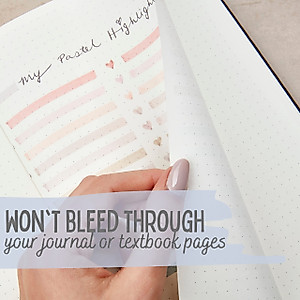 My Pastel Highligh
WON'T BLEED THROUGH
your journal or textbook pages